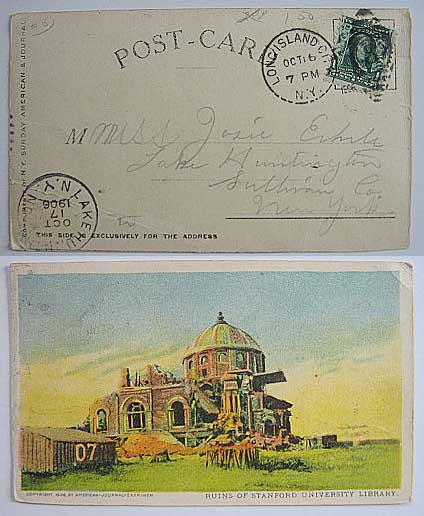 POST-CARD
LONG ISLAND CITY
OCT 16
7 PM
N.Y.
1906
1.50
Miss Josie Eckele
Lake Huntington
Sullivan Co
New York
COMPLIMENTS OF N.Y. SUNDAY AMERICAN & JOURNAL
OCT
17
1906
N.Y.
THIS SIDE IS EXCLUSIVELY FOR THE ADDRESS
07
COPYRIGHT, 1906, BY AMERICAN-JOURNAL-EXAMINER.
RUINS OF STANFORD UNIVERSITY LIBRARY.